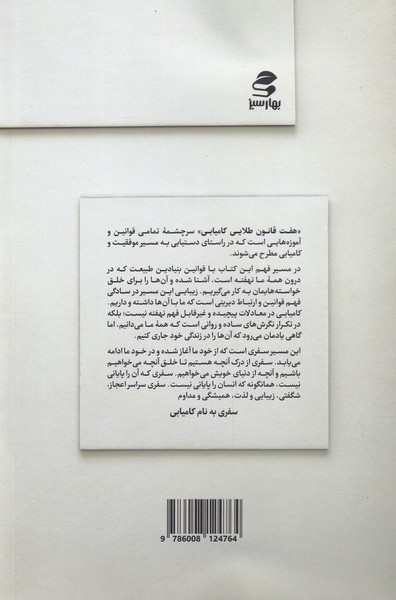 بهار سبز
«هفت قانون طلایی کامیابی» سرچشمهٔ تمامی قوانین و
آموزه‌هایی است که در راستای دستیابی به مسیر موفقیت و
کامیابی مطرح می‌شوند.
در مسیر فهم این کتاب با قوانین بنیادین طبیعت که در
درون همهٔ ما نهفته است، آشنا شده و آن‌ها را برای خلق
خواسته‌هایمان به کار می‌گیریم. زیبایی این مسیر در سادگی
فهم قوانین و ارتباط دیرینی است که ما با آن‌ها داشته و داریم.
کامیابی در معادلات پیچیده و غیرقابل فهم نهفته نیست؛ بلکه
در تکرار نگرش‌های ساده و روانی است که همهٔ ما می‌دانیم، اما
گاهی یادمان می‌رود که آن‌ها را در زندگی خود جاری کنیم.
این مسیر سفری است که از خود ما آغاز شده و در خود ما ادامه
می‌یابد. سفری از درک آنچه هستیم تا خلق آنچه می‌خواهیم
باشیم و آنچه از دنیای خویش می‌خواهیم. سفری که آن را پایانی
نیست، همانگونه که انسان را پایانی نیست. سفری سراسر اعجاز،
شگفتی، زیبایی و لذت، همیشگی و مداوم
سفری به نام کامیابی
9 786008 124764